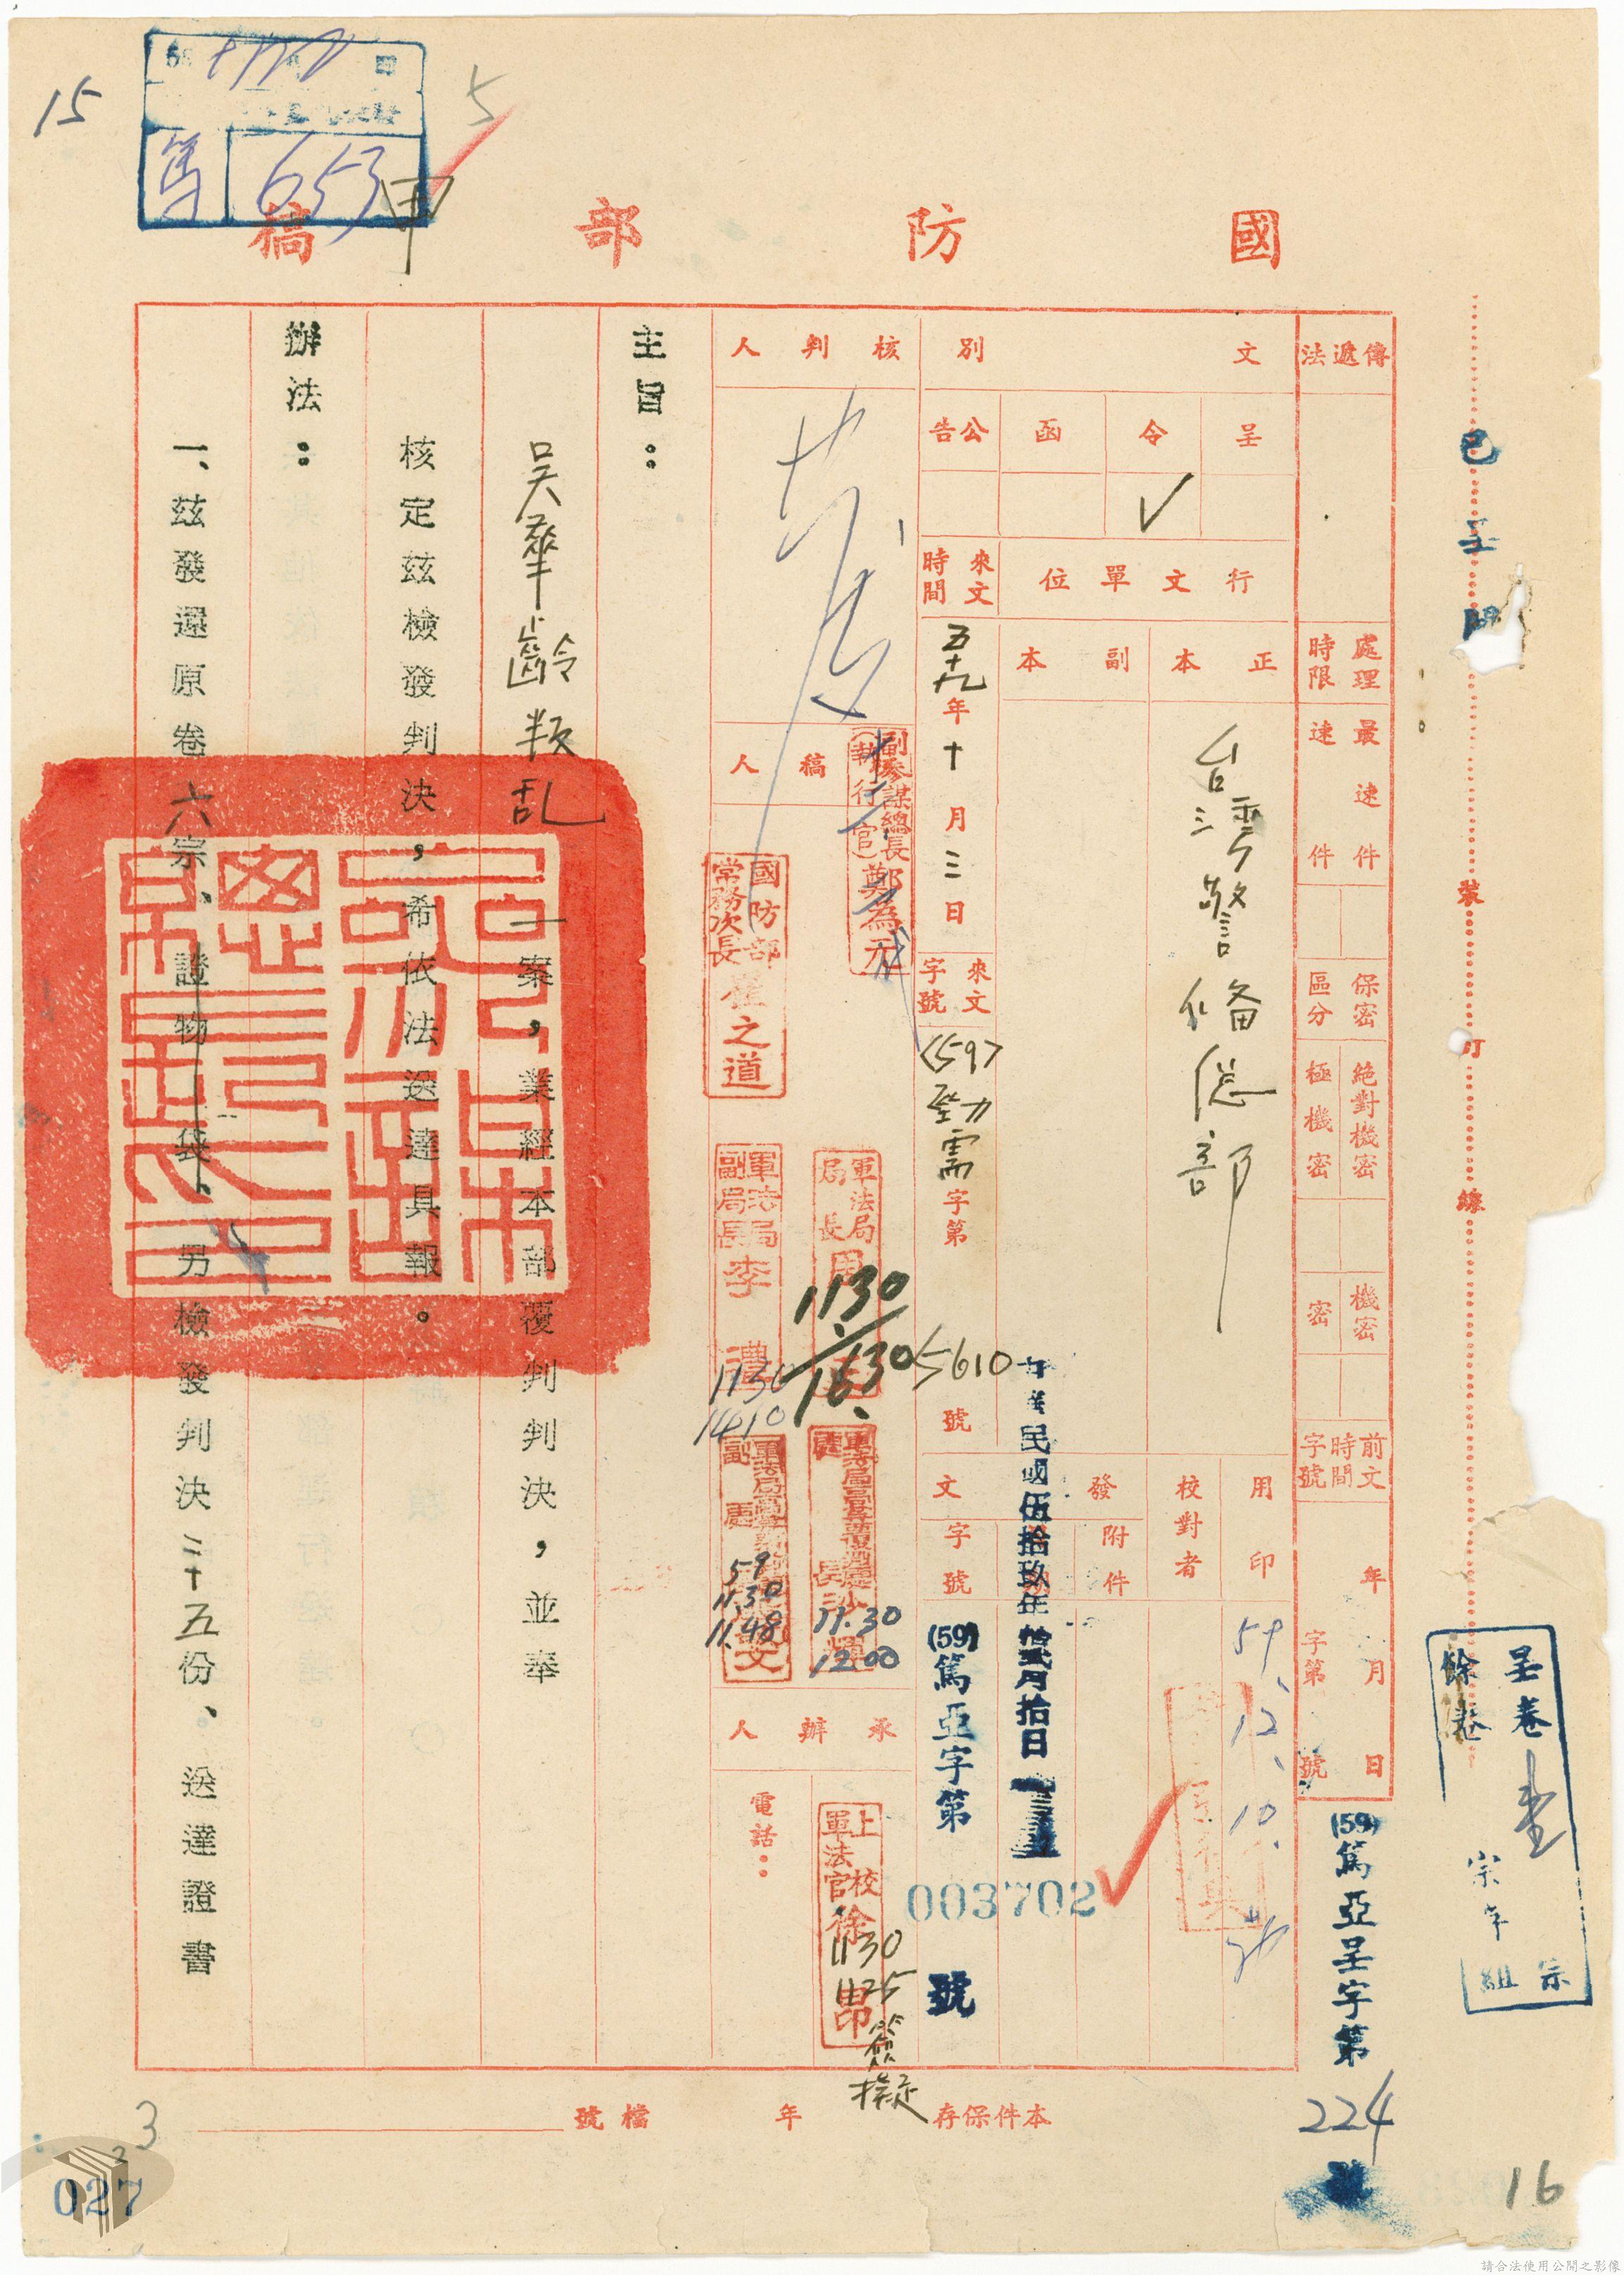 國防部稿
15
篤 653
5
甲
已呈閱
裝訂線
傳遞法
處理時限
最速件
速件
保密區分
絕對機密
極機密
機密
密
前文時間字號
年月日
字第號
文別
呈
令
函
公告
✓
行文單位
正本
副本
台灣警備總部
來文時間
五十九年十月三日
來文字號
(59)勁需字第5610號
用印
59、12、10、
校對者
發文
附件
字號
中華民國伍拾玖年拾貳月拾日
(59)篤亞字第003702號
(59)篤亞呈字第224號
核判人
副參謀總長(執行官)鄭為元
稿人
國防部常務次長崔之道
軍法局局長周
1130
1630
軍法局副局長李
1130
1410
沙
11.30
12.00
59
11.30
11.48
承辦人
上校軍法官徐
1130
1125
簽擬
電話:
主旨:
吳華齡叛乱一案,業經本部覆判判決,並奉
核定茲檢發判決,希依法送達具報。
辦法:
一、茲發還原卷六宗、證物一袋、另檢發判決二十五份、送達證書
呈卷
宗
餘卷
宗
組
本件保存 年 檔號
3
2
027
16
請合法使用公開之影像